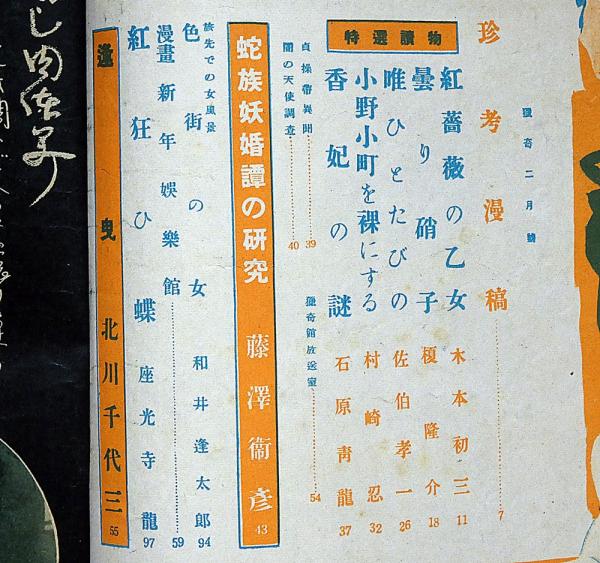 獵奇二月號
珍考漫稿 7
特選讀物
紅薔薇の乙女 木本初三 11
曇り硝子 榎隆介 18
唯ひとたびの 佐伯孝一 26
小野小町を裸にする 村崎忍 32
香妃の謎 石原青龍 37
貞操帶異聞 39
闇の天使調査 40
獵奇館放送室 54
蛇族妖婚譚の研究 藤澤衞彦 43
旅先での女風景
色街の女 和井逢太郎 94
漫畫新年娛樂館 59
紅狂ひ蝶 座光寺龍 97
逢曳 北川千代三 55